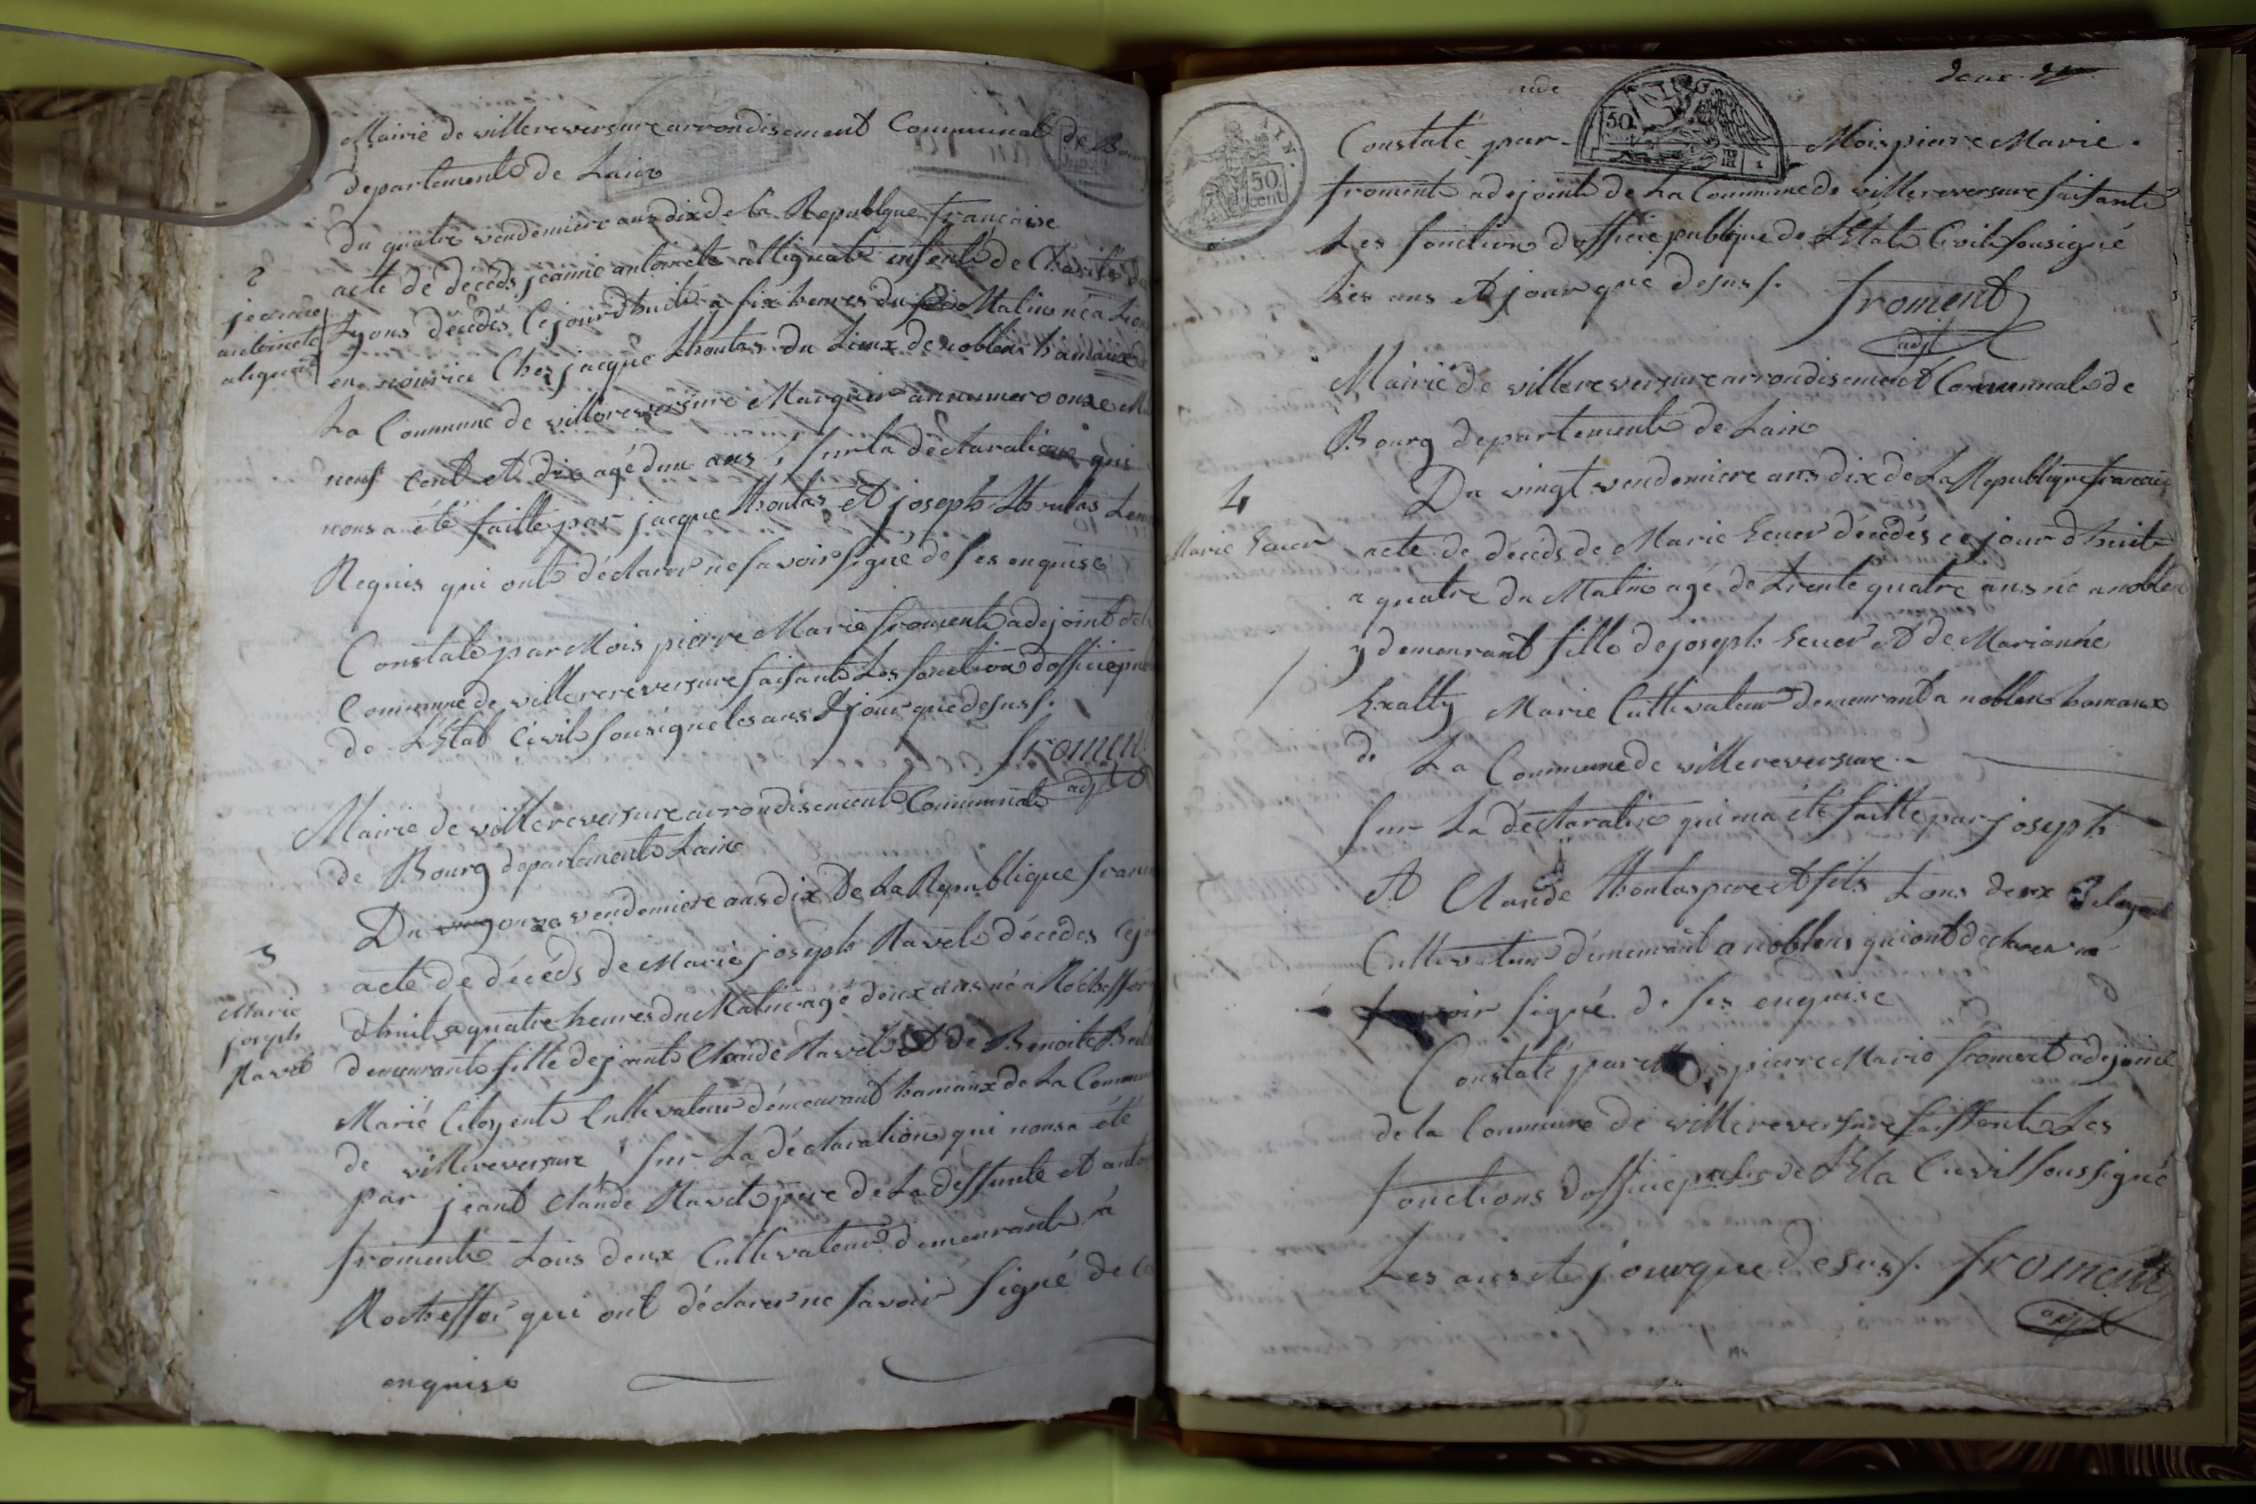 Mairie de villereversure arrondisement Communal de Bour
departement de Lain
du quatre vendemiere ans dix de la Republque française
2
acte de décéds jeanne antoinete alliguate enfent de Charité de
jeanne
antoinete
aliguat
Lyons décédés Cejourdhuit a six heures du Matin né a Lion
en nourice Chez jacque thoulas du Lieux de noblens hamaux de
La Commune de villereversure Marquer aunumero onze Mil
neuf Cent et dix agé dun ans, sur la déctaration qui
nous a été faitte par jacque thoulas et joseph thoulas
Requis qui ont déclarer ne savoir signé de ses enquise
Constaté par Mois pierre Marie froment adejoint de la
Commune de villerereversure faisant Les fonction dofficie
de LEtat Civil sousigne les ans et jour que desus.
froment
adjt
Mairie de villereversure arrondisement Communale
de Bourg departement Lain
Du onze vendemiere ans dix De La Republique franc
3
acte de décéds de Marie joseph Ravet décédes Cejour
Marie
joseph
Ravet
dhuit a quatre heures du Matin agé deux ans né a Rocheffor
demeurant fille de jeant Claude Ravet et de Benoite
Marié Citoyent Cultivateur démeurant hamaux de La Commune
de villereversure, sur La déclaration qui nous a été
par jeant Claude Ravet père de La deffunte et anto
froment tous deux Cultivateur demeurant a
Rocheffor qui ont déclarer ne savoir signé de
enquise
deux
Constaté par Mois piere Marie
50
cent
50
froment adejoint de La Commune de villereversure faisant
Les fonction dofficie publique de LEtat Civil sousigné
Les ans et jour que desus.
froment
adjt
Mairie de villereversure arrondisement Communale de
Bourg departement de Lain
Du vingt vendemiere ans dix de La Republique francais
4
acte de décéds de Marie décédés cejour dhuit
Marie
a quatre du Matin agé de trente quatre ans né a noblen
y demeurant fille de joseph et de Marianne
Marie Cultivateur demeurant a noblen hamaux
de La Commune de villereversure
sur La déctaration qui ma été faitte par joseph
et Claude thoulas pere et fils tous deux
Cultivateur démeurant a noblens qui ont déclarer ne
savoir signé de ses enquise
Constaté par Mois pierre Marie froment adejoint
de la Commune de villereversure faissant Les
fonctions dofficie public de LEta Civil soussigné
Les ans et jour que desus. froment
adjt